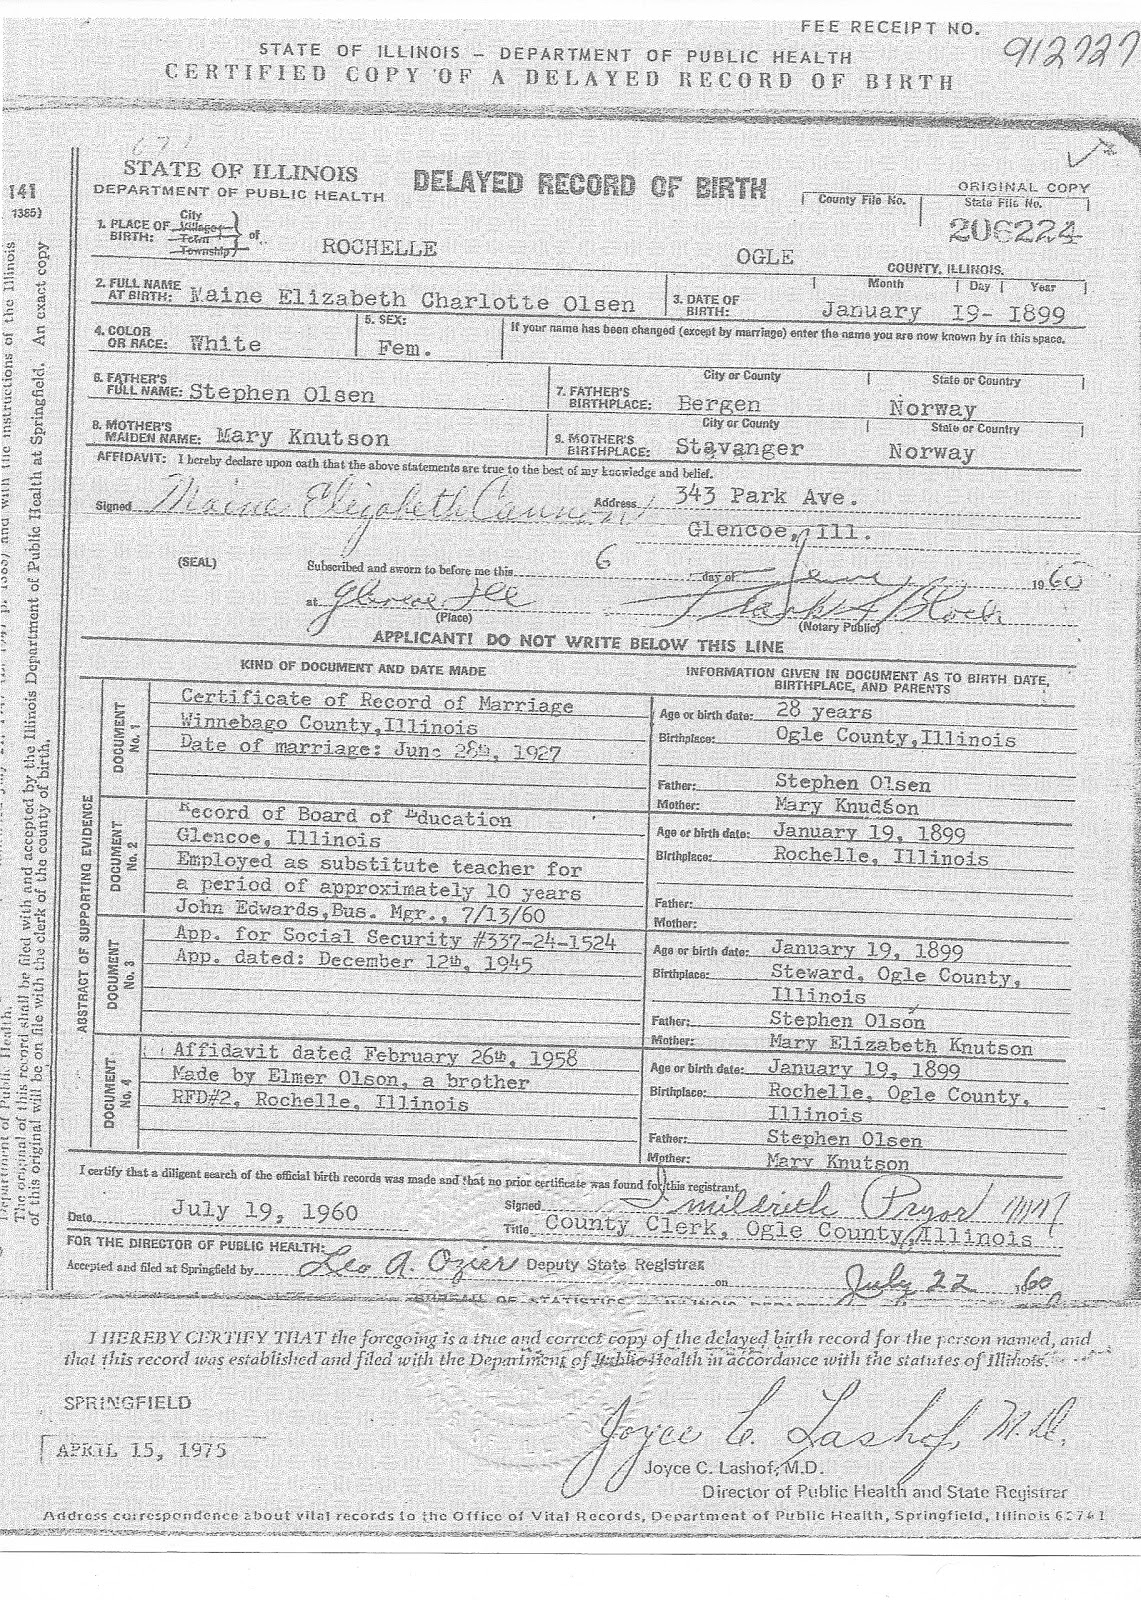 FEE RECEIPT NO. 912727
STATE OF ILLINOIS – DEPARTMENT OF PUBLIC HEALTH
CERTIFIED COPY OF A DELAYED RECORD OF BIRTH
141
1385)
STATE OF ILLINOIS
DEPARTMENT OF PUBLIC HEALTH
DELAYED RECORD OF BIRTH
ORIGINAL COPY
County File No.
State File No.
206224
1. PLACE OF BIRTH: City Village Town Township } of ROCHELLE OGLE COUNTY, ILLINOIS.
2. FULL NAME AT BIRTH: Maine Elizabeth Charlotte Olsen
3. DATE OF BIRTH: Month Day Year
January 19- 1899
4. COLOR OR RACE: White
5. SEX: Fem.
If your name has been changed (except by marriage) enter the name you are now known by in this space.
6. FATHER'S FULL NAME: Stephen Olsen
7. FATHER'S BIRTHPLACE: City or County State or Country
Bergen Norway
8. MOTHER'S MAIDEN NAME: Mary Knutson
9. MOTHER'S BIRTHPLACE: City or County State or Country
Stavanger Norway
AFFIDAVIT: I hereby declare upon oath that the above statements are true to the best of my knowledge and belief.
Signed Maine Elizabeth Address 343 Park Ave.
Glencoe, Ill.
(SEAL)
Subscribed and sworn to before me this 6 day of June 1960
at Glencoe Ill
(Place)
(Notary Public)
APPLICANT! DO NOT WRITE BELOW THIS LINE
KIND OF DOCUMENT AND DATE MADE
INFORMATION GIVEN IN DOCUMENT AS TO BIRTH DATE, BIRTHPLACE, AND PARENTS
ABSTRACT OF SUPPORTING EVIDENCE
DOCUMENT No. 1
Certificate of Record of Marriage
Winnebago County,Illinois
Date of marriage: June 28th, 1927
Age or birth date: 28 years
Birthplace: Ogle County,Illinois
Father: Stephen Olsen
Mother: Mary Knudson
DOCUMENT No. 2
Record of Board of Education
Glencoe, Illinois
Employed as substitute teacher for
a period of approximately 10 years
John Edwards,Bus. Mgr., 7/13/60
Age or birth date: January 19, 1899
Birthplace: Rochelle, Illinois
Father:
Mother:
DOCUMENT No. 3
App. for Social Security #337-24-1524
App. dated: December 12th, 1945
Age or birth date: January 19, 1899
Birthplace: Steward, Ogle County,
Illinois
Father: Stephen Olson
Mother: Mary Elizabeth Knutson
DOCUMENT No. 4
Affidavit dated February 26th, 1958
Made by Elmer Olson, a brother
RFD#2, Rochelle, Illinois
Age or birth date: January 19, 1899
Birthplace: Rochelle, Ogle County,
Illinois
Father: Stephen Olsen
Mother: Mary Knutson
I certify that a diligent search of the official birth records was made and that no prior certificate was found for this registrant
Date July 19, 1960
Signed Pryor
Title County Clerk, Ogle County, Illinois
FOR THE DIRECTOR OF PUBLIC HEALTH:
Accepted and filed at Springfield by Leo A. Ozier Deputy State Registrar on July 22 1960
I HEREBY CERTIFY THAT the foregoing is a true and correct copy of the delayed birth record for the person named, and
that this record was established and filed with the Department of Public Health in accordance with the statutes of Illinois.
SPRINGFIELD
APRIL 15, 1975
Joyce C. Lashof, M.D.
Joyce C. Lashof, M.D.
Director of Public Health and State Registrar
Address correspondence about vital records to the Office of Vital Records, Department of Public Health, Springfield, Illinois 62761
and with the instructions of the Illinois
The original of this record shall be filed with and accepted by the Illinois Department of Public Health at Springfield. An exact copy
of this original will be on file with the clerk of the county of birth.